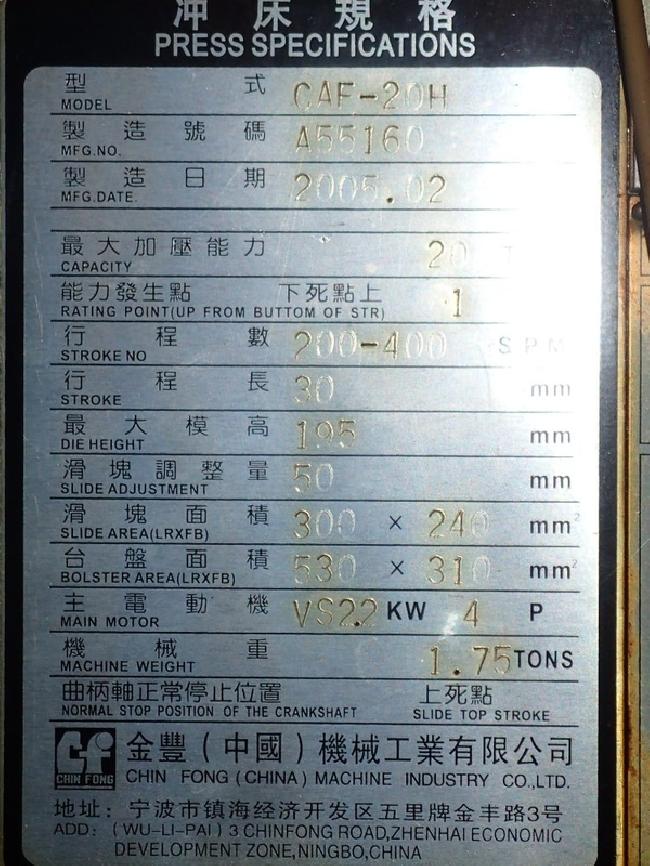 冲床規格
PRESS SPECIFICATIONS
型式 CAF-20H
MODEL
製造號碼 A55160
MFG.NO.
製造日期 2005.02
MFG.DATE.
最大加壓能力 20 T
CAPACITY
能力發生點 下死點上 1
RATING POINT(UP FROM BUTTOM OF STR)
行程數 200-400 S P M
STROKE NO
行程長 30 mm
STROKE
最大模高 195 mm
DIE HEIGHT
滑塊調整量 50 mm
SLIDE ADJUSTMENT
滑塊面積 300 × 240 mm²
SLIDE AREA(LRXFB)
台盤面積 530 × 310 mm²
BOLSTER AREA(LRXFB)
主電動機 VS2.2 KW 4 P
MAIN MOTOR
機械重 1.75 TONS
MACHINE WEIGHT
曲柄軸正常停止位置 上死點
NORMAL STOP POSITION OF THE CRANKSHAFT SLIDE TOP STROKE
CHIN FONG
金豐(中國)機械工業有限公司
CHIN FONG (CHINA) MACHINE INDUSTRY CO.,LTD.
地址: 宁波市镇海经济开发区五里牌金丰路3号
ADD: (WU-LI-PAI) 3 CHINFONG ROAD,ZHENHAI ECONOMIC
DEVELOPMENT ZONE,NINGBO,CHINA